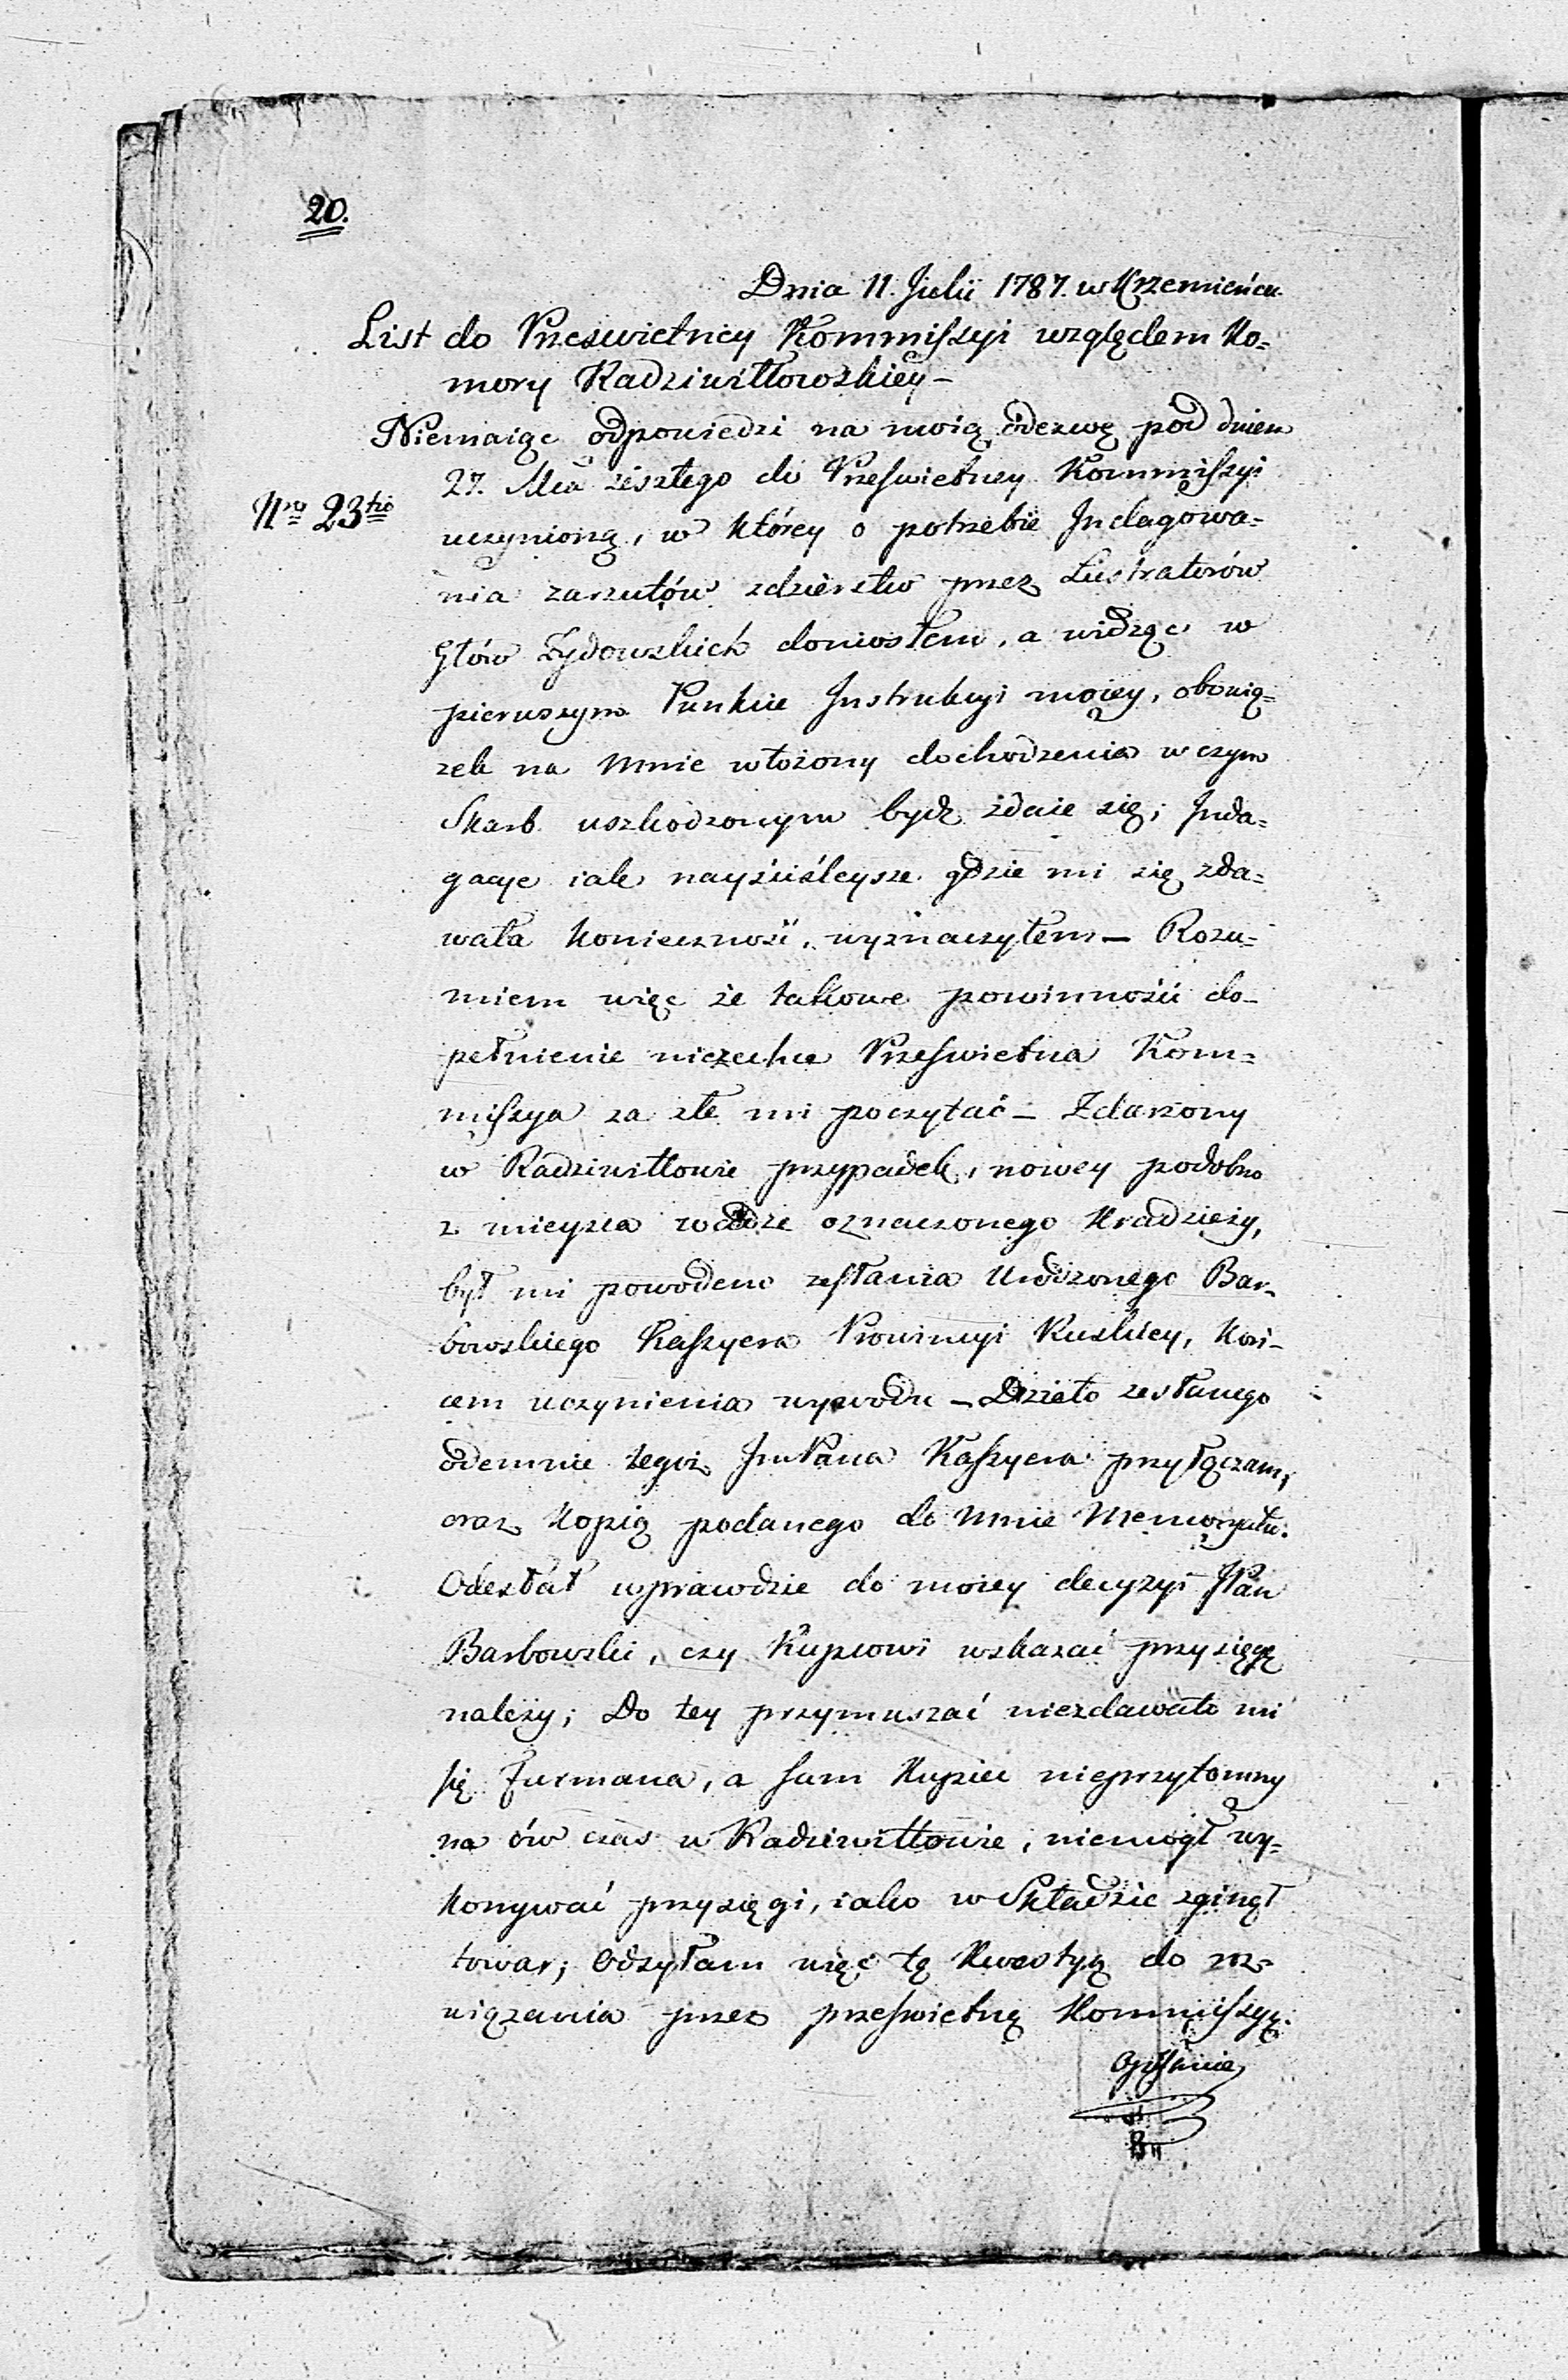 20.
Dnia 11. Julii 1787. w Krzemieńcu.
List do Prześwietney Kommiſsyi względem Ko=
mory Radziwiłłowskiey –
Niemaiąc odpowiedzi na moią odezwę pod dniem
27. Mca zeszłego do Przeſwietney Kommiſsyi
Nro 23tio
uczynioną, w którey o potrzebie Indagowa=
nia zarzutów zdzierstw przez Lustratorów
Głów Żydowskich doniosłem, a widząc w
pierwszym Punkcie Instrukcyi moiey, obowią=
zek na mnie włożony dochodzenia w czym
Skarb uszkodzonym bydź zdaie się; Inda=
gacye iak nayściśleysze gdzie mi się zda=
wała konieczność, wyznaczyłem – Rozu=
miem więc że takowe powinności do-
pełnienie niezechce Przeſwietna Kom=
miſsya za złe mi poczytać – Zdarzony
w Radziwiłłowie przypadek, nowey podobno
z mieysca oznaczonego Kradzieży,
był mi powodem zeſłania Urodzonego Bar-
bowskiego Kaſsyera Prowincyi Ruskiey, koń-
cem uczynienia wywodu – Dzieło zesłanego
odemnie tegoż ImPana Kaſsyera przyłączam,
oraz kopią podanego do mnie Memoryału.
Odesłał wprawdzie do moiey decyzyi JPan
Barbowski, czy Kupcowi wskazać przysięgę
należy; Do tey przymuszać niezdawało mi
ſię Furmana, a ſam Kupiec nieprzytomny
na ów czas w Radziwiłłowie, niemógł wy=
konywać przysięgi, iako w Składzie zginął
towar; Odsyłam więc tę Kwestyą do roz-
wiązania przez przeſwietną Kommiſsyą.